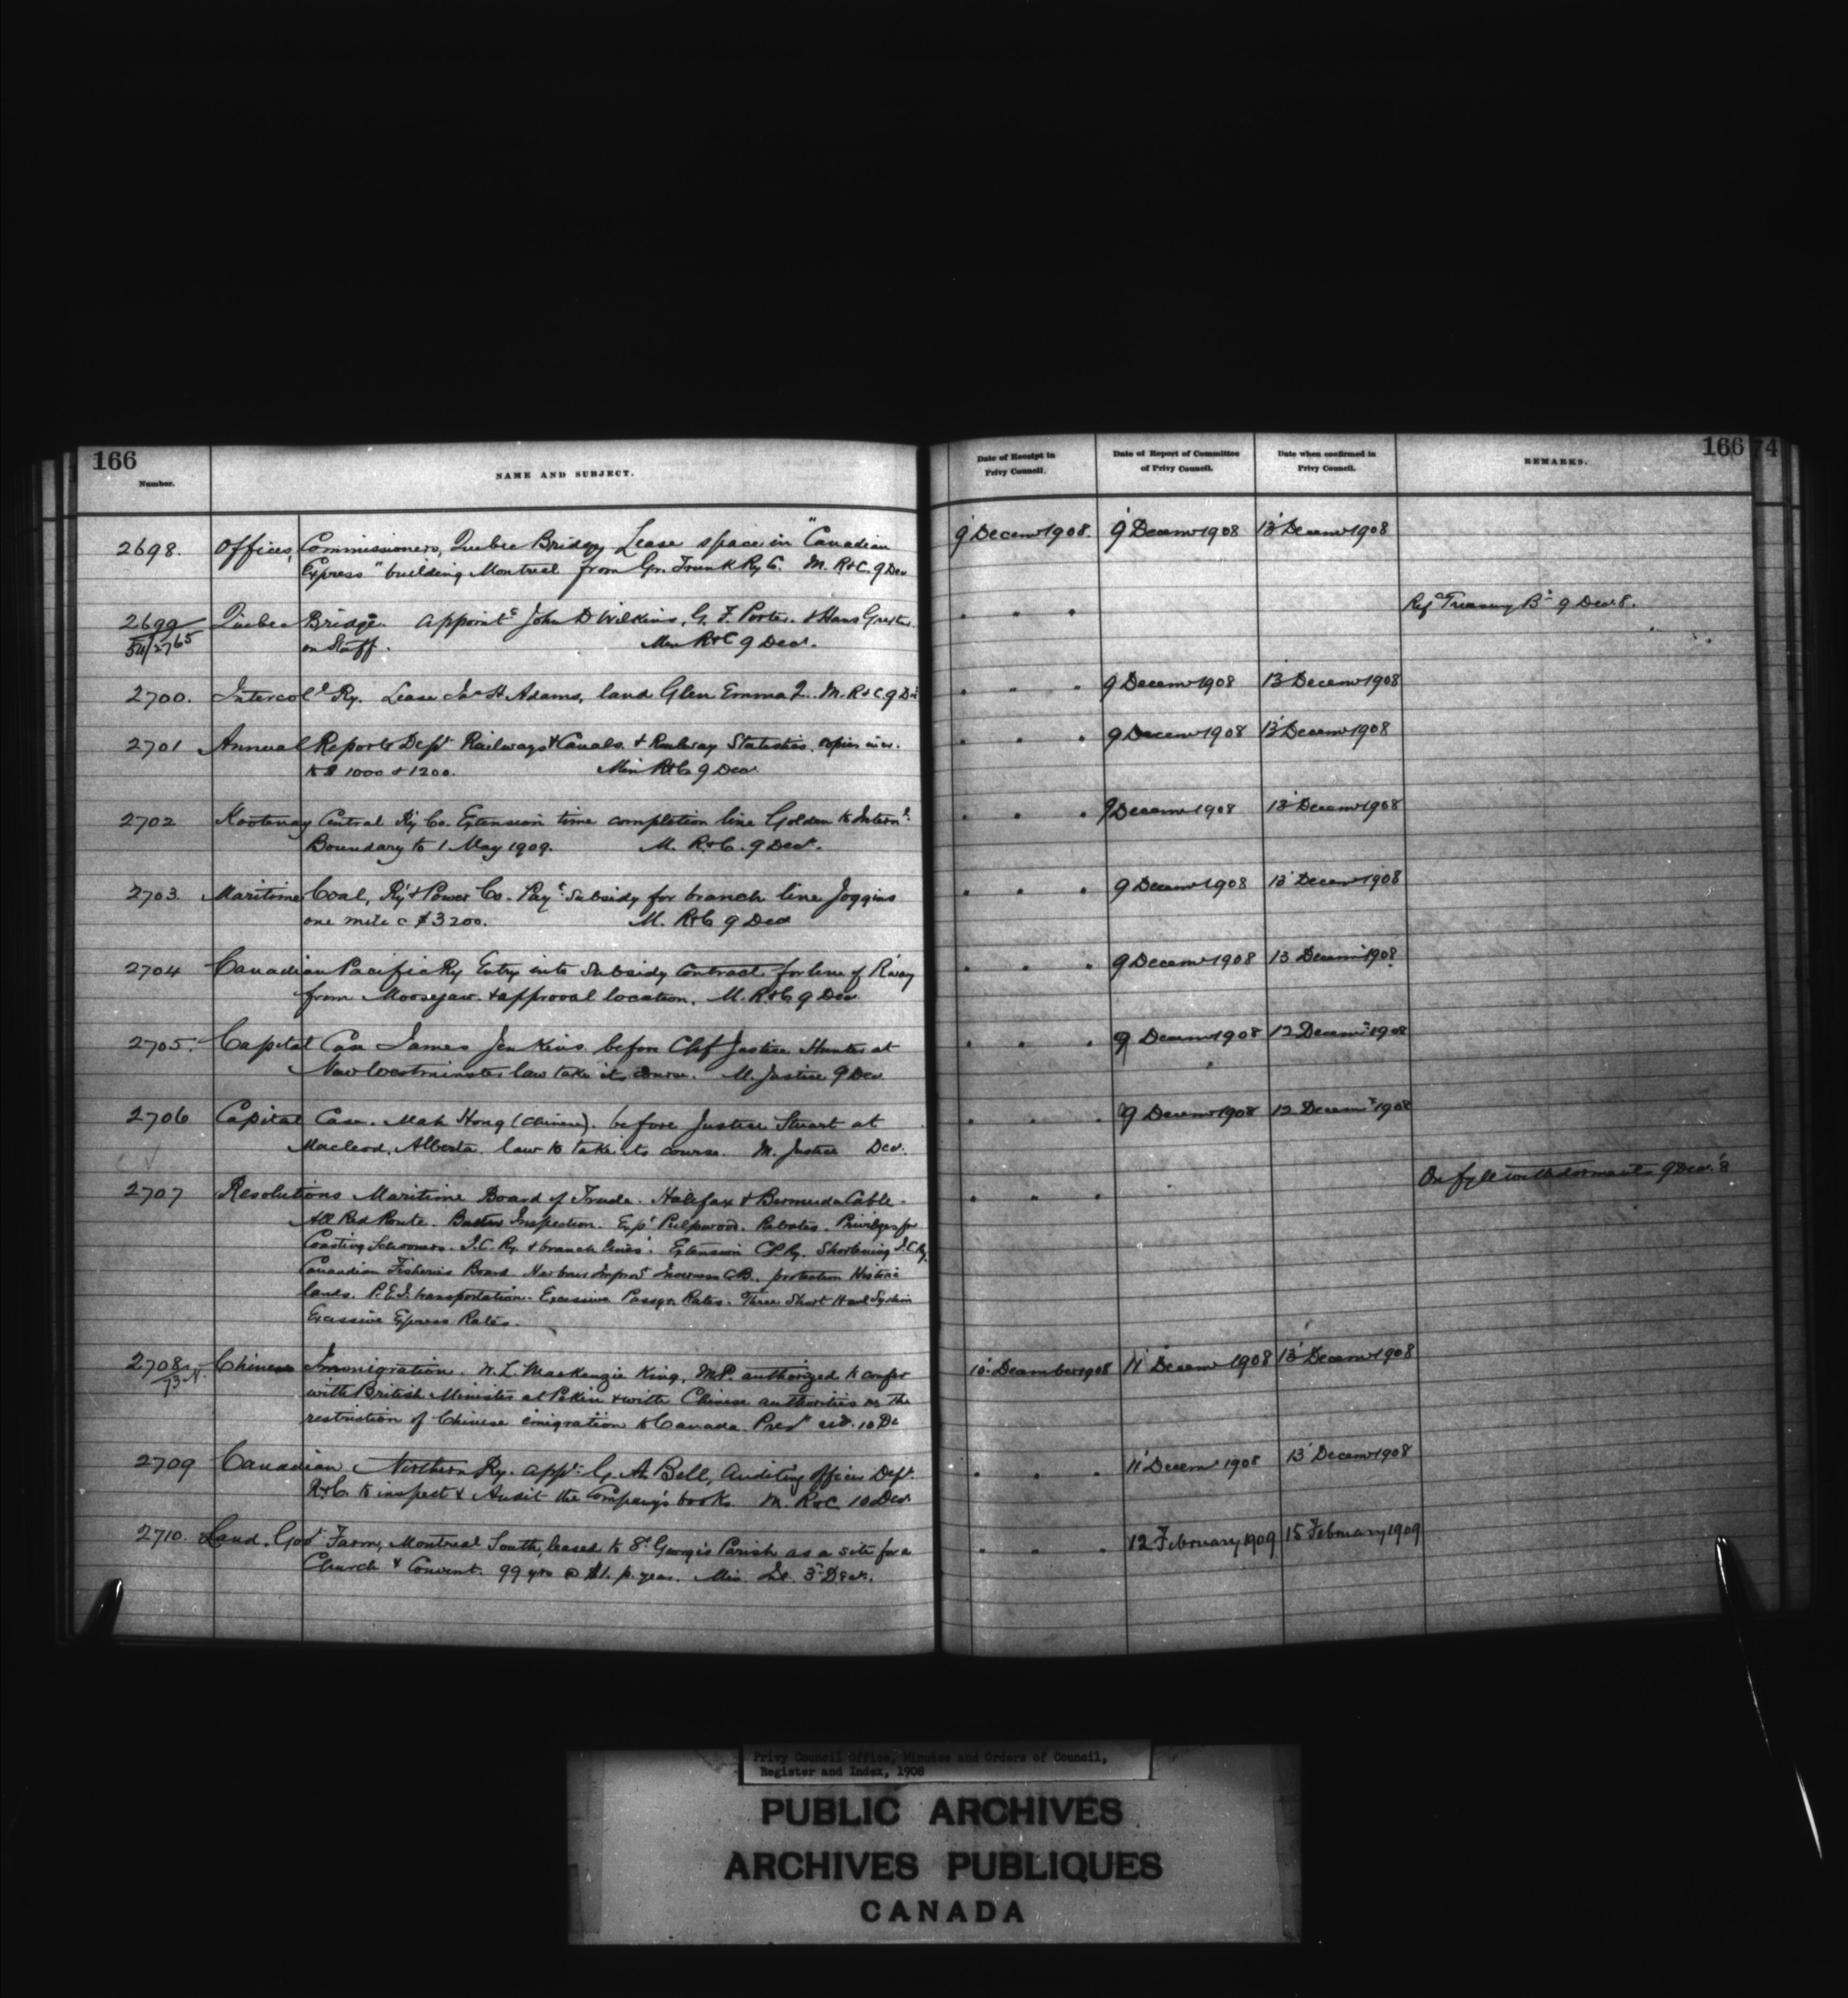 166
Number.
NAME AND SUBJECT.
Date of Receipt in Privy Council.
Date of Report of Committee of Privy Council.
Date when confirmed in Privy Council.
REMARKS.
166 74
2698. Offices, Commissioners, Quebec Bridge Lease space in "Canadian 9' Decemr 1908. 9' Decemr 1908 13' Decemr 1908
Express" building Montreal from Gr. Trunk Ry Co. M. R&C. 9 Dec
2699 Quebec Bridge. appointt John D Wilkins, G. F. Porter, & Hans " " " Refd Treasury Bd 9 Decr 8.
54/2765 on Staff. Min R&C 9 Decr.
2700. Intercoll Ry. Lease Jas H Adams, land Glen Emma Q. M. R&C 9 Dec " " " 9 Decemr 1908 13' Decemr 1908
2701 Annual Reports Dept Railways & Canals & Railway Statistics, copies incr. " " " 9 Decemr 1908 13' Decemr 1908
to 1000 & 1200. Min R&C 9 Decr
2702 Kootenay Central Ry Co. Extension time completion line Golden to Internl " " " 9 Decemr 1908 13' Decemr 1908
Boundary to 1 May 1909. M. R&C. 9 Decr.
2703. Maritime Coal, Ry & Power Co. Payt Subsidy for branch line Joggins " " " 9 Decemr 1908 13' Decemr 1908
one mile c $3200. M. R&C 9 Dec
2704 Canadian Pacific Ry Entry into Subsidy Contract for line of R'way " " " 9 Decemr 1908 13 Decemr 1908
from Moosejaw & approval location. M. R&C 9 Dec
2705. Capital Case James Jenkins before Chf Justice Hunter at " " " 9 Decemr 1908 12 Decemr 1908
New Westminster law take its course. M. Justice 9 Dec
2706 Capital Case. Mah Hong (Chinese). before Justice Stuart at " " " 9 Decemr 1908 12 Decemr 1908
Macleod, Alberta. law to take its course. M. Justice Dec.
2707 Resolutions Maritime Board of Trade. Halifax & Bermuda Cable. " " " On fyle with dormants 9 Decr '8
All Red Route. Inspection. Expt Pulpwood. Rebates. Privileges for
Coasting Schooners. I.C. Ry. & branch lines. Extension CP Ry. Shortening I.C Ry.
Canadian Fisheries Board. Harbour Improvt C.B., protection Historic
lands. P.E.I. transportation. Excessive Passgr. Rates. Three Short Haul System
Excessive Express Rates.
2708 Chinese Immigration. W. L. MacKenzie King, M.P. authorized to confer 10' December 1908 11' Decemr 1908 13' Decemr 1908
73 N. with British Minister at Pekin & with Chinese authorities on the
restriction of Chinese emigration to Canada. 10 De
2709 Canadian Northern Ry. appt G. A. Bell, Auditing Officer Dept. " " " 11' Decemr 1908 13' Decemr 1908
R&C. to inspect & Audit the Company's books. M. R&C 10 Decr.
2710. Land. Govt Farm, Montreal South, leased to St. George's Parish as a site for a " " " 12 February 1909 15 February 1909
Church & Convent. 99 yrs @ $1. p. year. Min. 3d Decr.
Privy Council Office, Minutes and Orders of Council,
Register and Index, 1908
PUBLIC ARCHIVES
ARCHIVES PUBLIQUES
CANADA